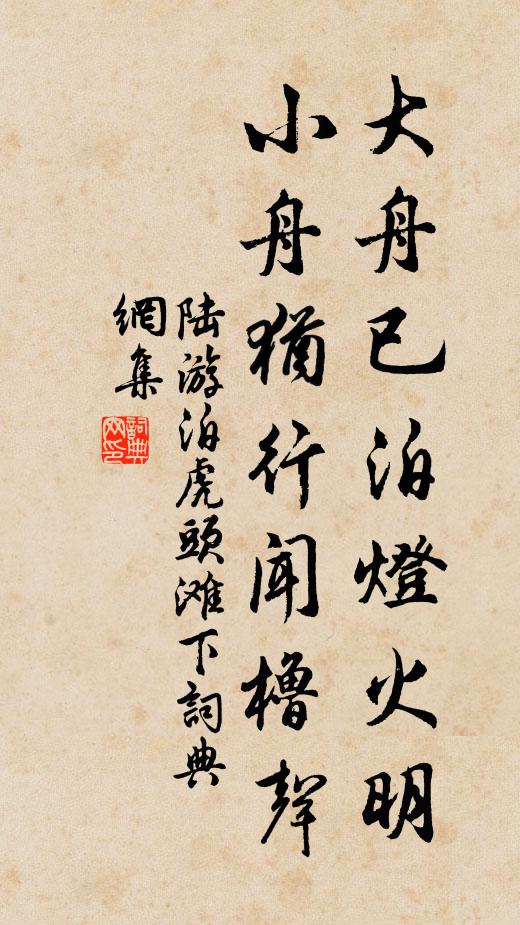 大舟已泊燈火明
小舟猶行聞櫓聲
陆游泊虎頭滩下詞典
網集
詞典网印